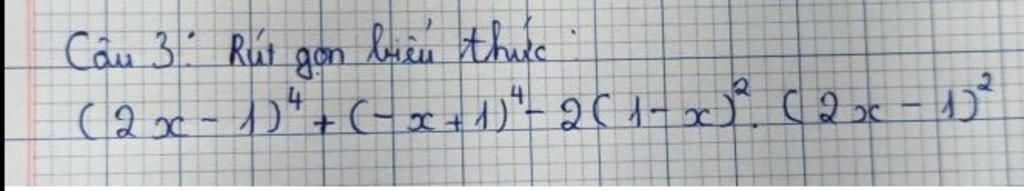 Câu 3: Rút gọn biểu thức:
(2x - 1)⁴ + (-x + 1)⁴ - 2(1 - x)². (2x - 1)²